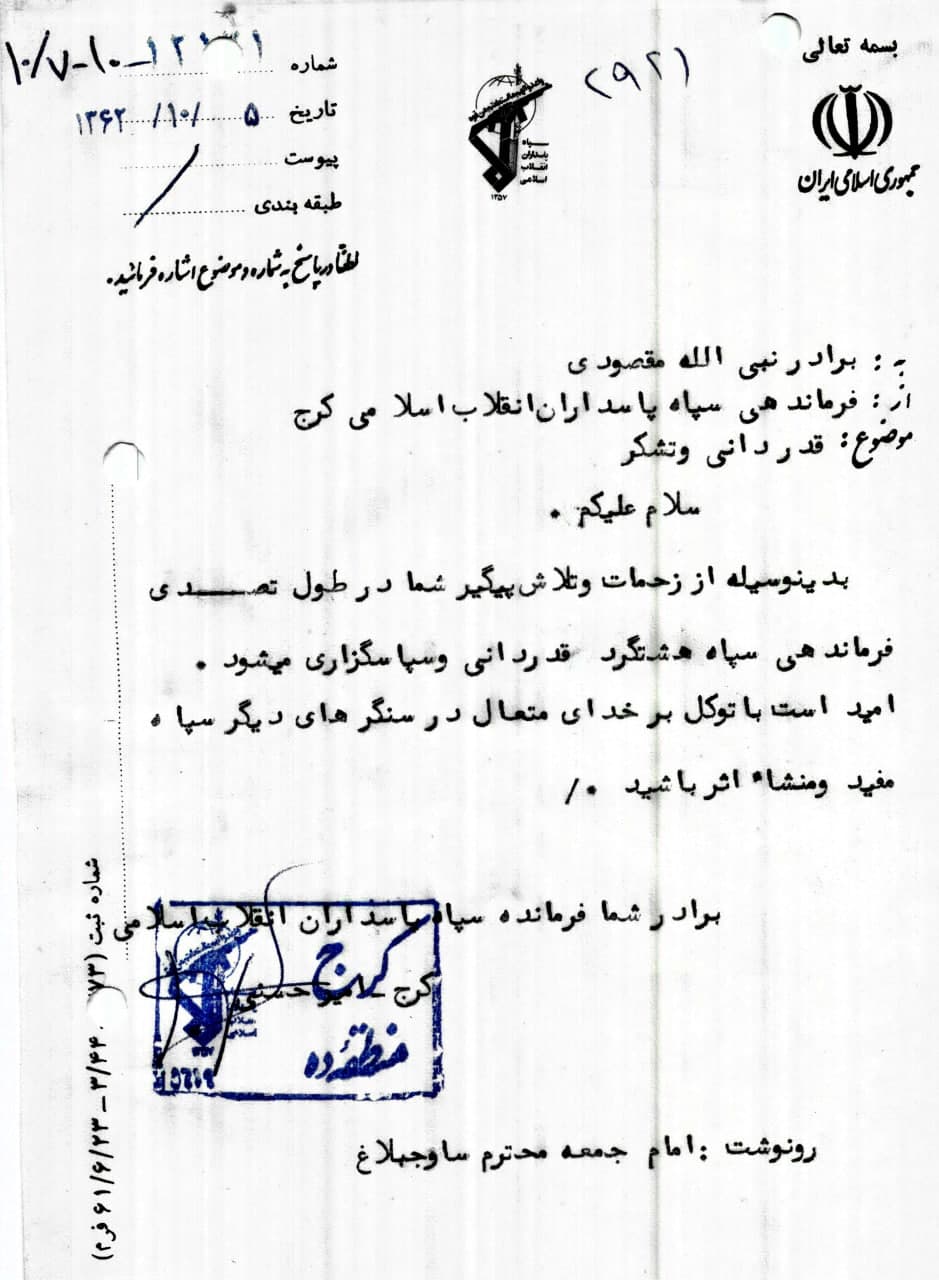 بسمه تعالی
جمهوری اسلامی ایران
۲۹۲۱
سپاه
پاسداران
انقلاب
اسلامی
۱۳۵۷
شماره
تاریخ ۵ /۱۰/ ۱۳۶۲
پیوست
طبقه بندی
لطفا در پاسخ به شماره و موضوع اشاره فرمائید.
به : برادر نبی الله مقصودی
از : فرماندهی سپاه پاسداران انقلاب اسلامی کرج
موضوع : قدردانی وتشکر
سلام علیکم .
بدینوسیله از زحمات وتلاش پیگیر شما در طول تصدی
فرماندهی سپاه هشتگرد قدردانی وسپاسگزاری میشود .
امید است با توکل بر خدای متعال در سنگرهای دیگر سپاه
مفید ومنشاء اثر باشید ./
برادر شما فرمانده سپاه پاسداران انقلاب اسلامی
کرج _ امیر حسنی
کرج
منطقه ده
رونوشت : امام جمعه محترم ساوجبلاغ
شماره ثبت (۷۳/ ۳/۴۴ _ ۶۱/۶/۲۳ فرم)